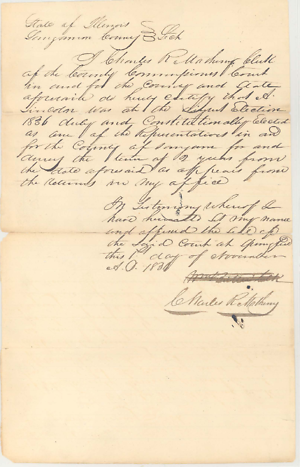 State of Illinois
Sangamon County } Sct
I Charles R. Matheny Clerk
of the County Commissioners Court
in and for the County and State
aforesaid do hereby certify that A.
Lincoln was at the August Election
1836 duly and Constitutionally Elected
as one of the Representatives in and
for the County of Sangamo for and
during the term of 2 years from
the State aforesaid as appears from
the returns in my office
In Testimony whereof I
have hereunto set my name
and affixed the seal of
the said Court at Springfield
this 1st day of November
A.D. 1836
Charles R. Matheny